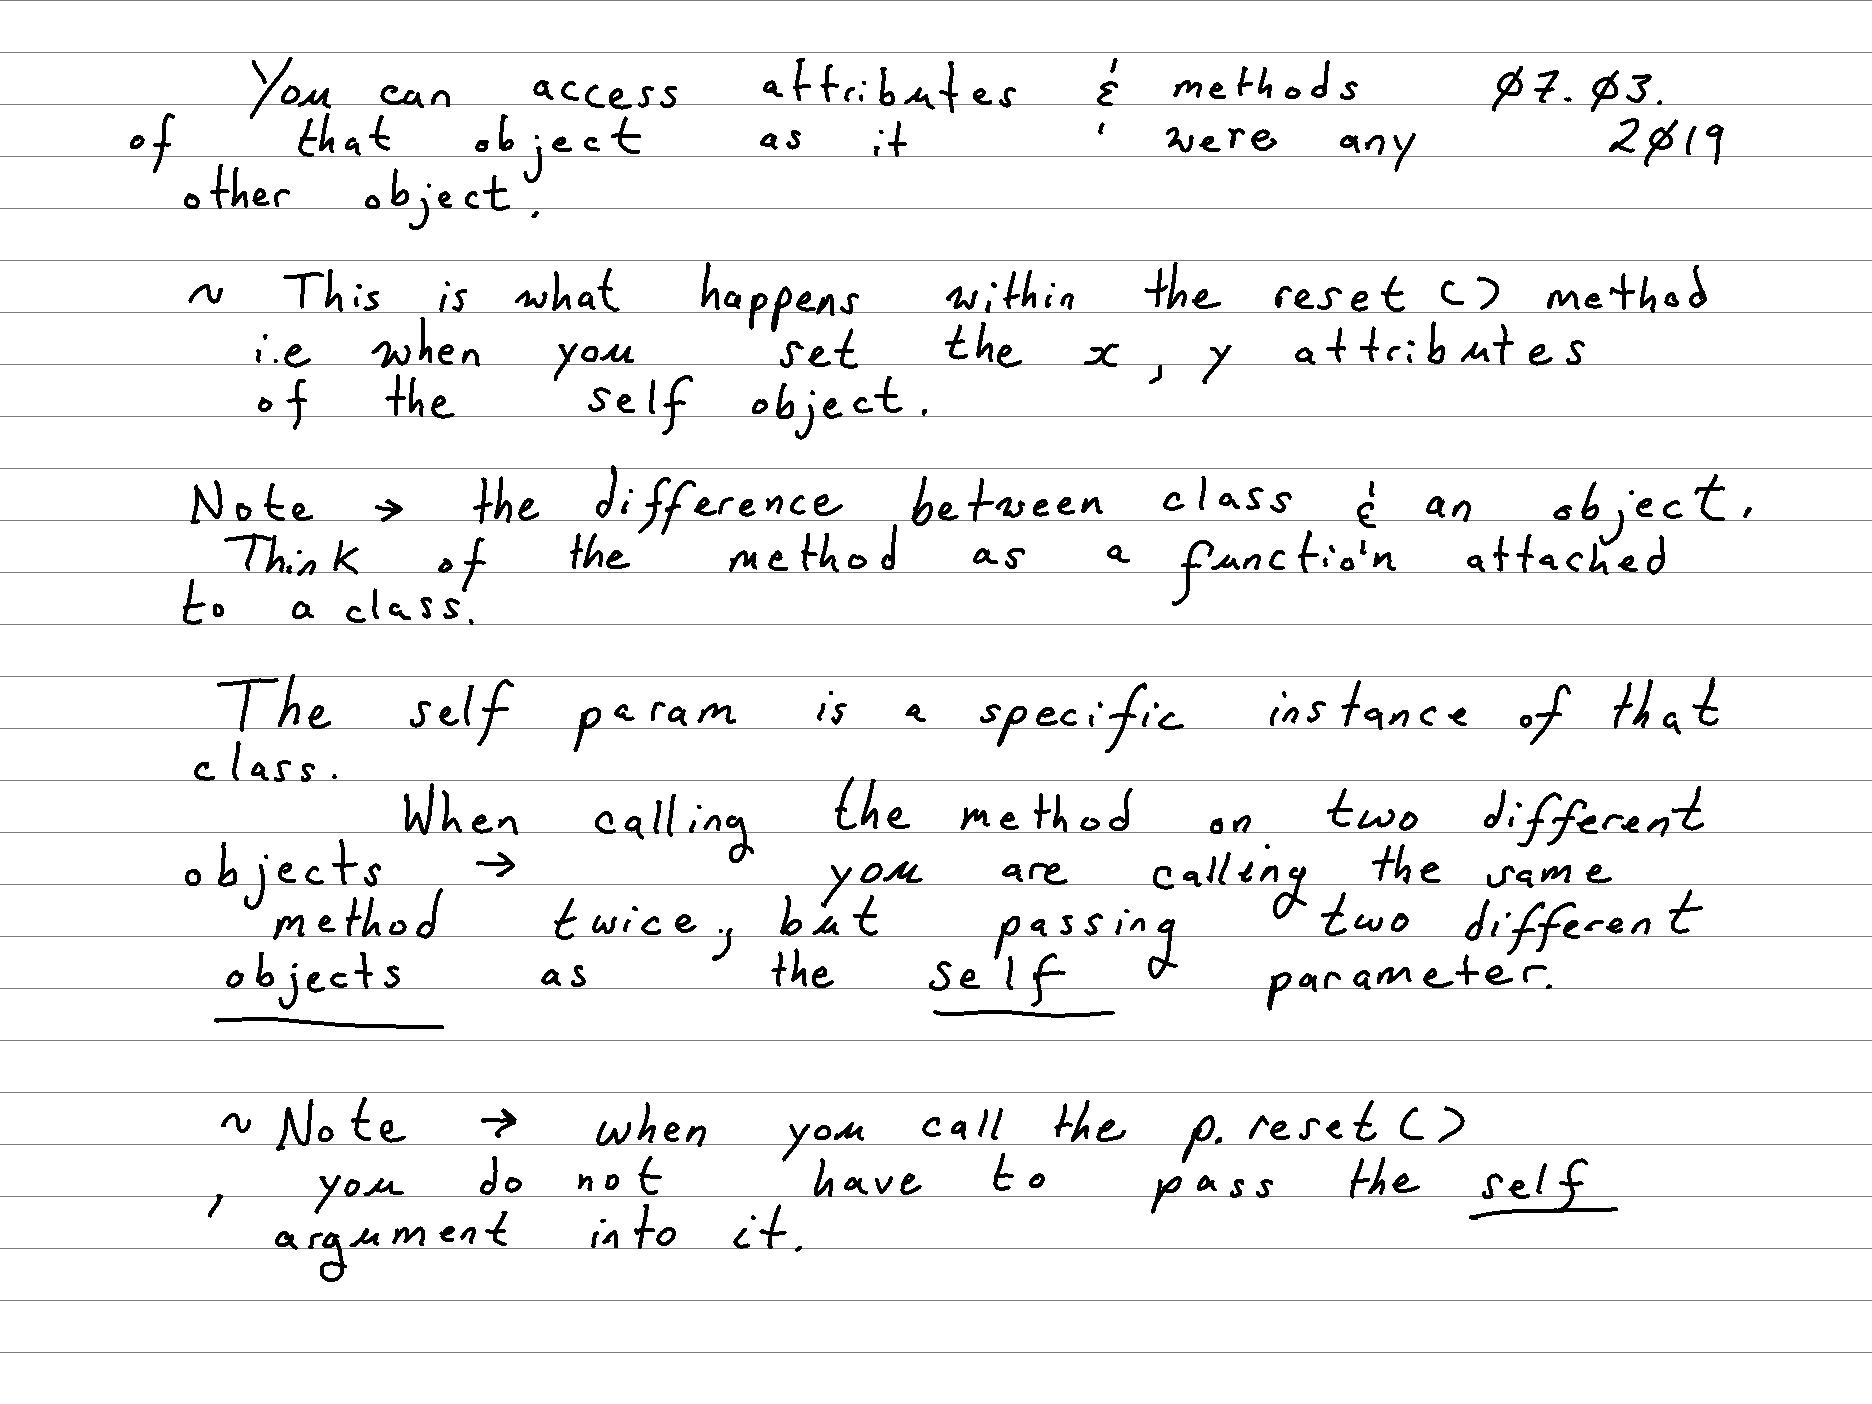 You can access attributes & methods ø7.ø3.
of that object as it were any 2ø19
other object.
~ This is what happens within the reset () method
i.e when you set the x, y attributes
of the self object.
Note → the difference between class & an object.
Think of the method as a function attached
to a class.
The self param is a specific instance of that
class.
When calling the method on two different
objects → you are calling the same
method twice, but passing two different
objects as the self parameter.
~ Note → when you call the p. reset ()
, you do not have to pass the self
argument into it.